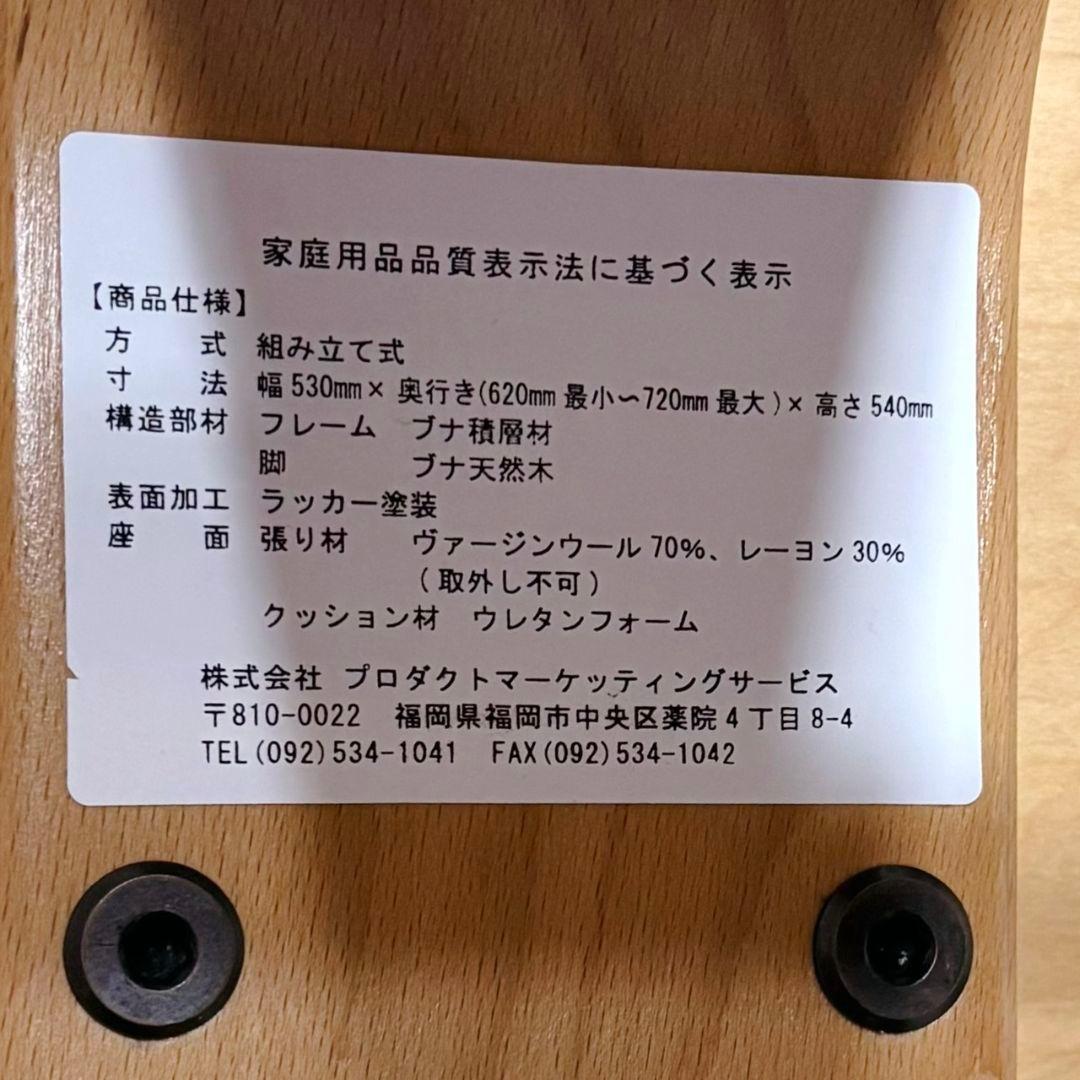 家庭用品品質表示法に基づく表示
【商品仕様】
方　　式　組み立て式
寸　　法　幅530mm×奥行き(620mm最小〜720mm最大)×高さ540mm
構造部材　フレーム　ブナ積層材
脚　ブナ天然木
表面加工　ラッカー塗装
座　　面　張り材　ヴァージンウール70%、レーヨン30%
(取外し不可)
クッション材　ウレタンフォーム
株式会社　プロダクトマーケッティングサービス
〒810-0022　福岡県福岡市中央区薬院4丁目8-4
TEL(092)534-1041　FAX(092)534-1042